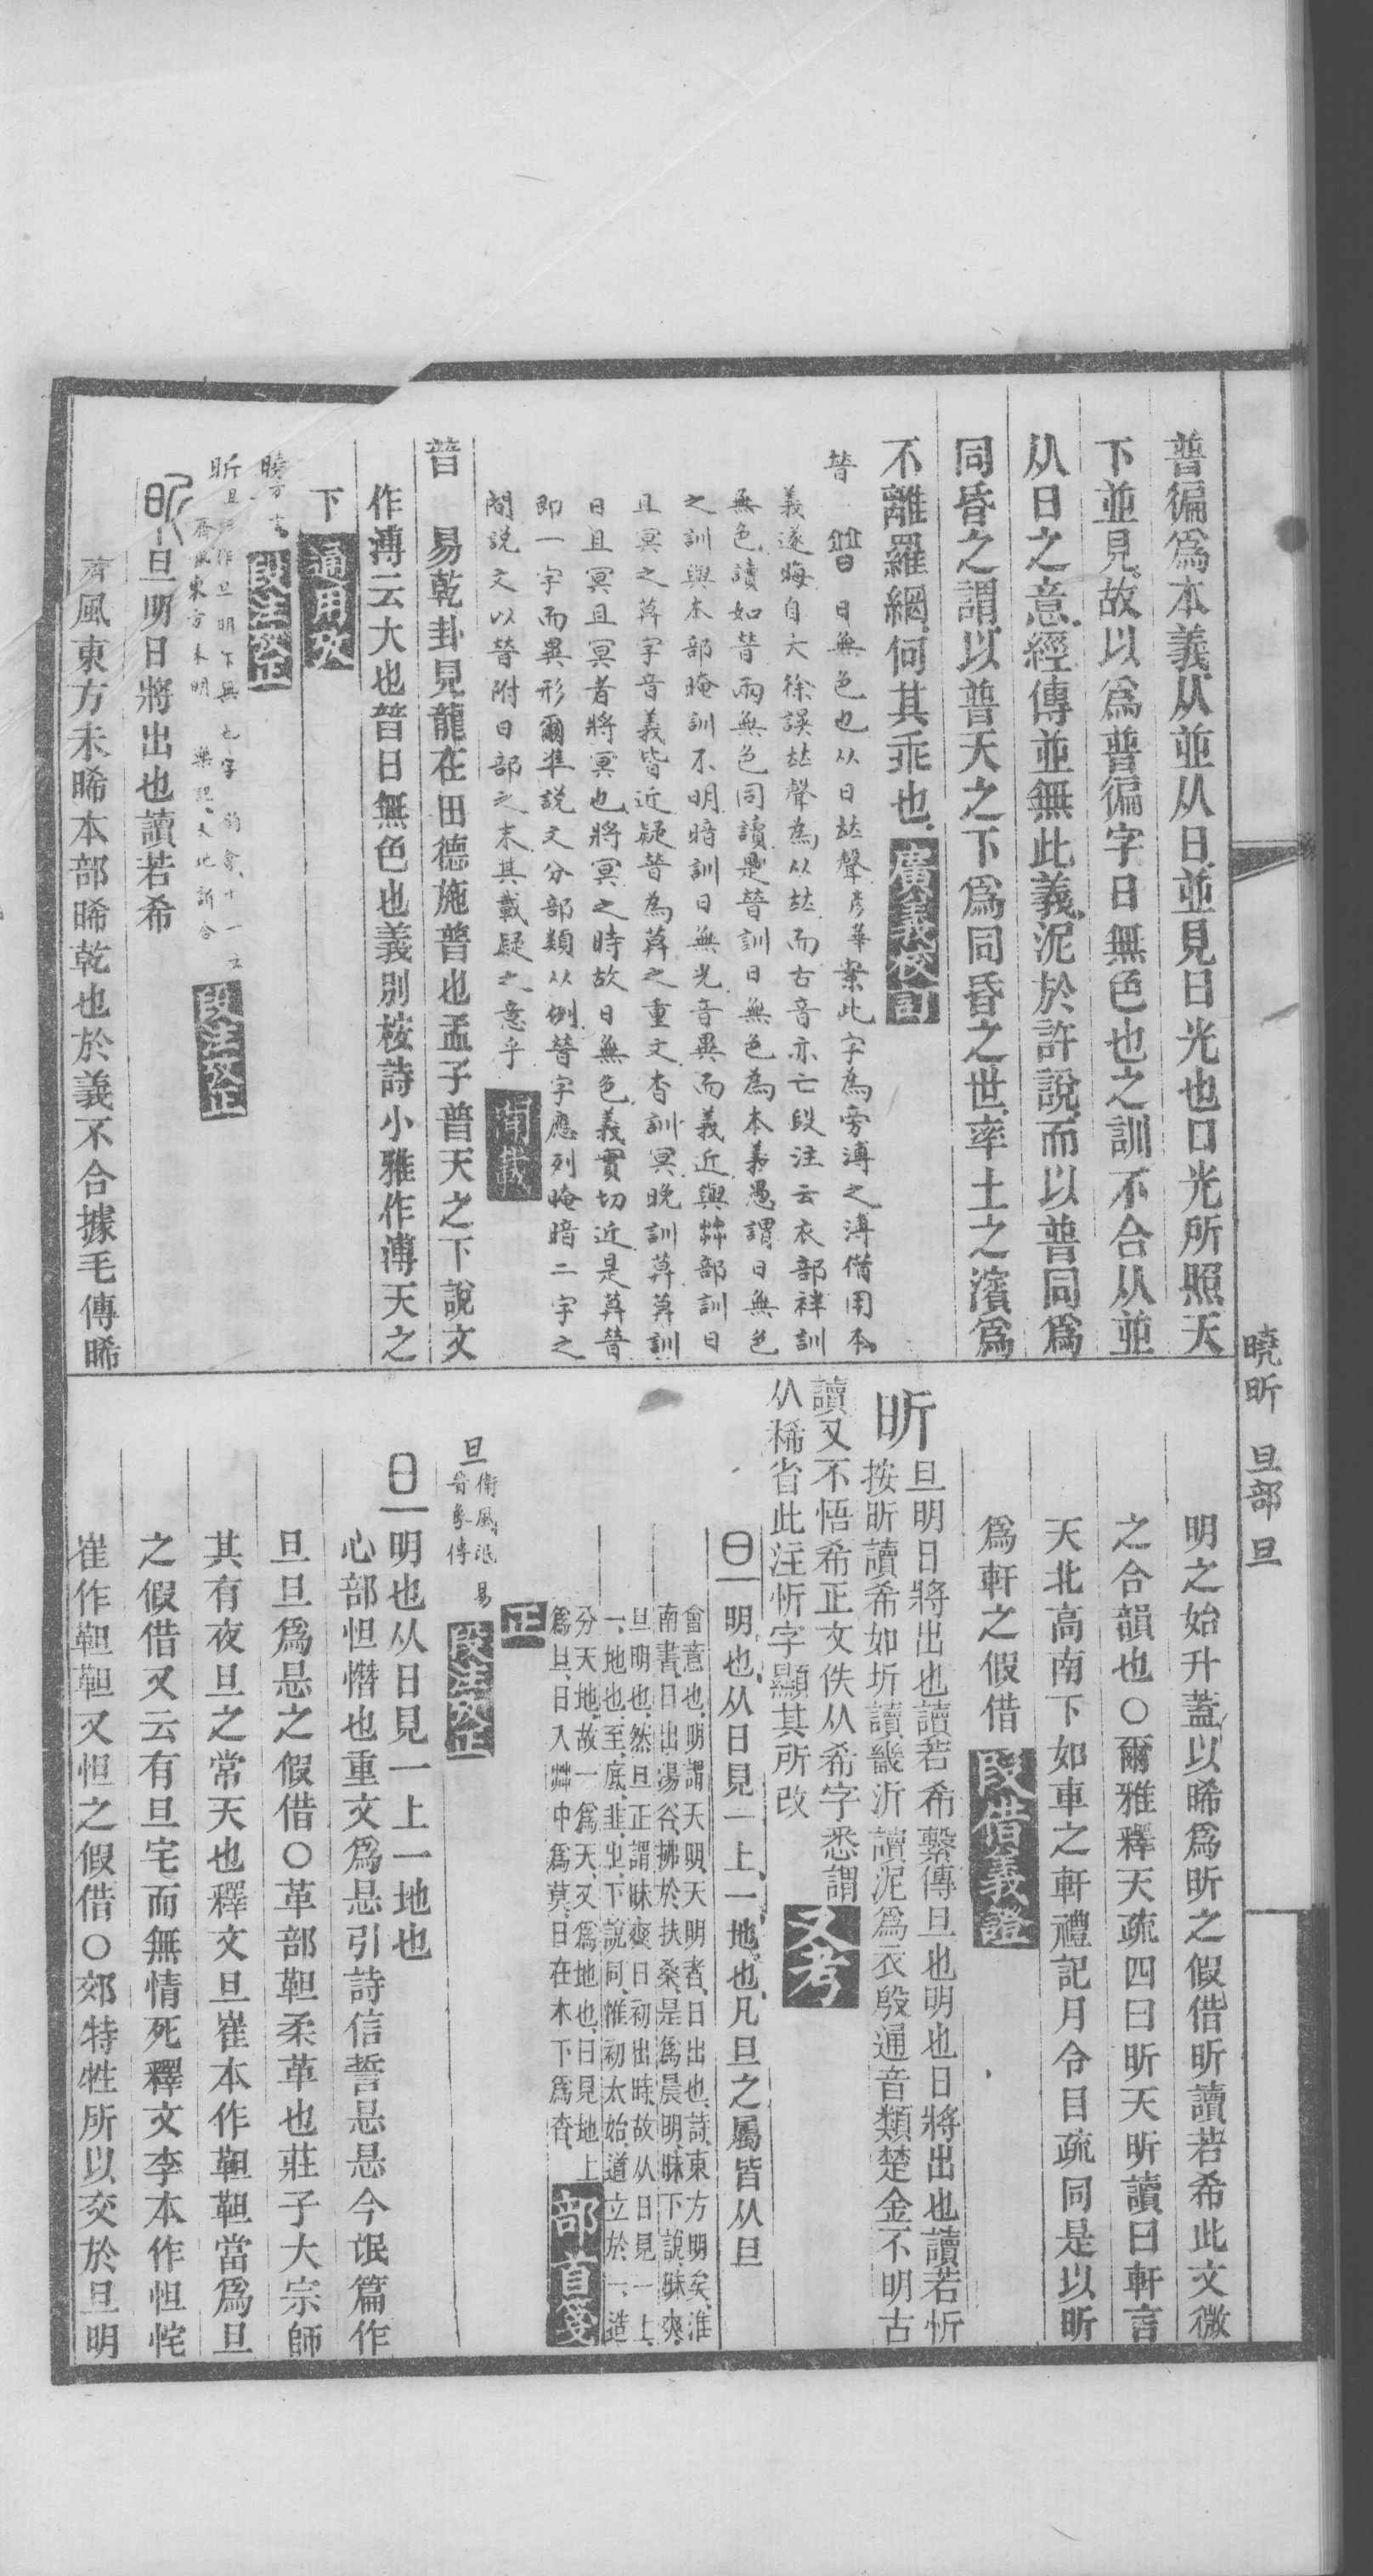 普徧爲本義从並从日並見日光也口光所照天
下並見故以爲普徧字日無色也之訓不合从並
从日之意經傳並無此義泥於許說而以普同爲
同昏之謂以普天之下爲同昏之世率土之濱爲
不離羅網何其乖也
廣義校訂
暜 日無色也从日竝聲彥華案此字為旁溥之溥借用本
義遂晦自大徐誤竝聲為从竝而古音亦亡段注云衣部袢訓
無色讀如普兩無色同讀是暜訓日無色為本義愚謂日無色
之訓與本部晻訓不明暗訓日無光音異而義近與茻部訓日
且冥之莫字音義皆近疑暜為莫之重文杳訓冥晚訓莫莫訓
日且冥且冥者將冥也將冥之時故日無色義實切近是莫暜
即一字而異形爾準說文分部類从例暜字應列晻暗二字之
間說文以暜附日部之末其載疑之意乎
暜 易乾卦見龍在田德施普也孟子普天之下說文
作溥云大也暜日無色也義別桉詩小雅作溥天之
下
通用攷
段注攷正
昕
齊風東方未明
段注攷正
旦明日將出也讀若希
齊風東方未晞本部晞乾也於義不合據毛傳晞
曉昕 旦部 旦
明之始升蓋以晞爲昕之假借昕讀若希此文微
之合韻也○爾雅釋天疏四曰昕天昕讀曰軒言
天北高南下如車之軒禮記月令目疏同是以昕
爲軒之假借
段借義證
昕
旦明日將出也讀若希繫傳旦也明也日將出也讀若忻
按昕讀希如圻讀畿沂讀泥爲衣殷通音類楚金不明古
讀又不悟希正文佚从希字悉謂
从稀省此注忻字顯其所改
又考
明也从日見一上一地也凡旦之屬皆从旦
會意也明謂天明天明者日出也詩東方明矣淮
南書日出湯谷拂於扶桑是爲晨明昧下說昧爽
旦明也然旦正謂昧爽日初出時故从日見一上
一地也至底韭屮下說同惟初太始道立於一造
分天地故一爲天又爲地也日見地上
爲旦日入茻中爲莫日在木下爲杳
部首箋
正
旦
衛風氓 易
晉象傳
段注攷正
明也从日見一上一地也
心部怛憯也重文爲悬引詩信誓悬悬今氓篇作
旦旦爲悬之假借○革部靼柔革也莊子大宗師
其有夜旦之常天也釋文旦崔本作靼靼當爲旦
之假借又云有旦宅而無情死釋文李本作怛侘
崔作靼靼又怛之假借○郊特牲所以交於旦明